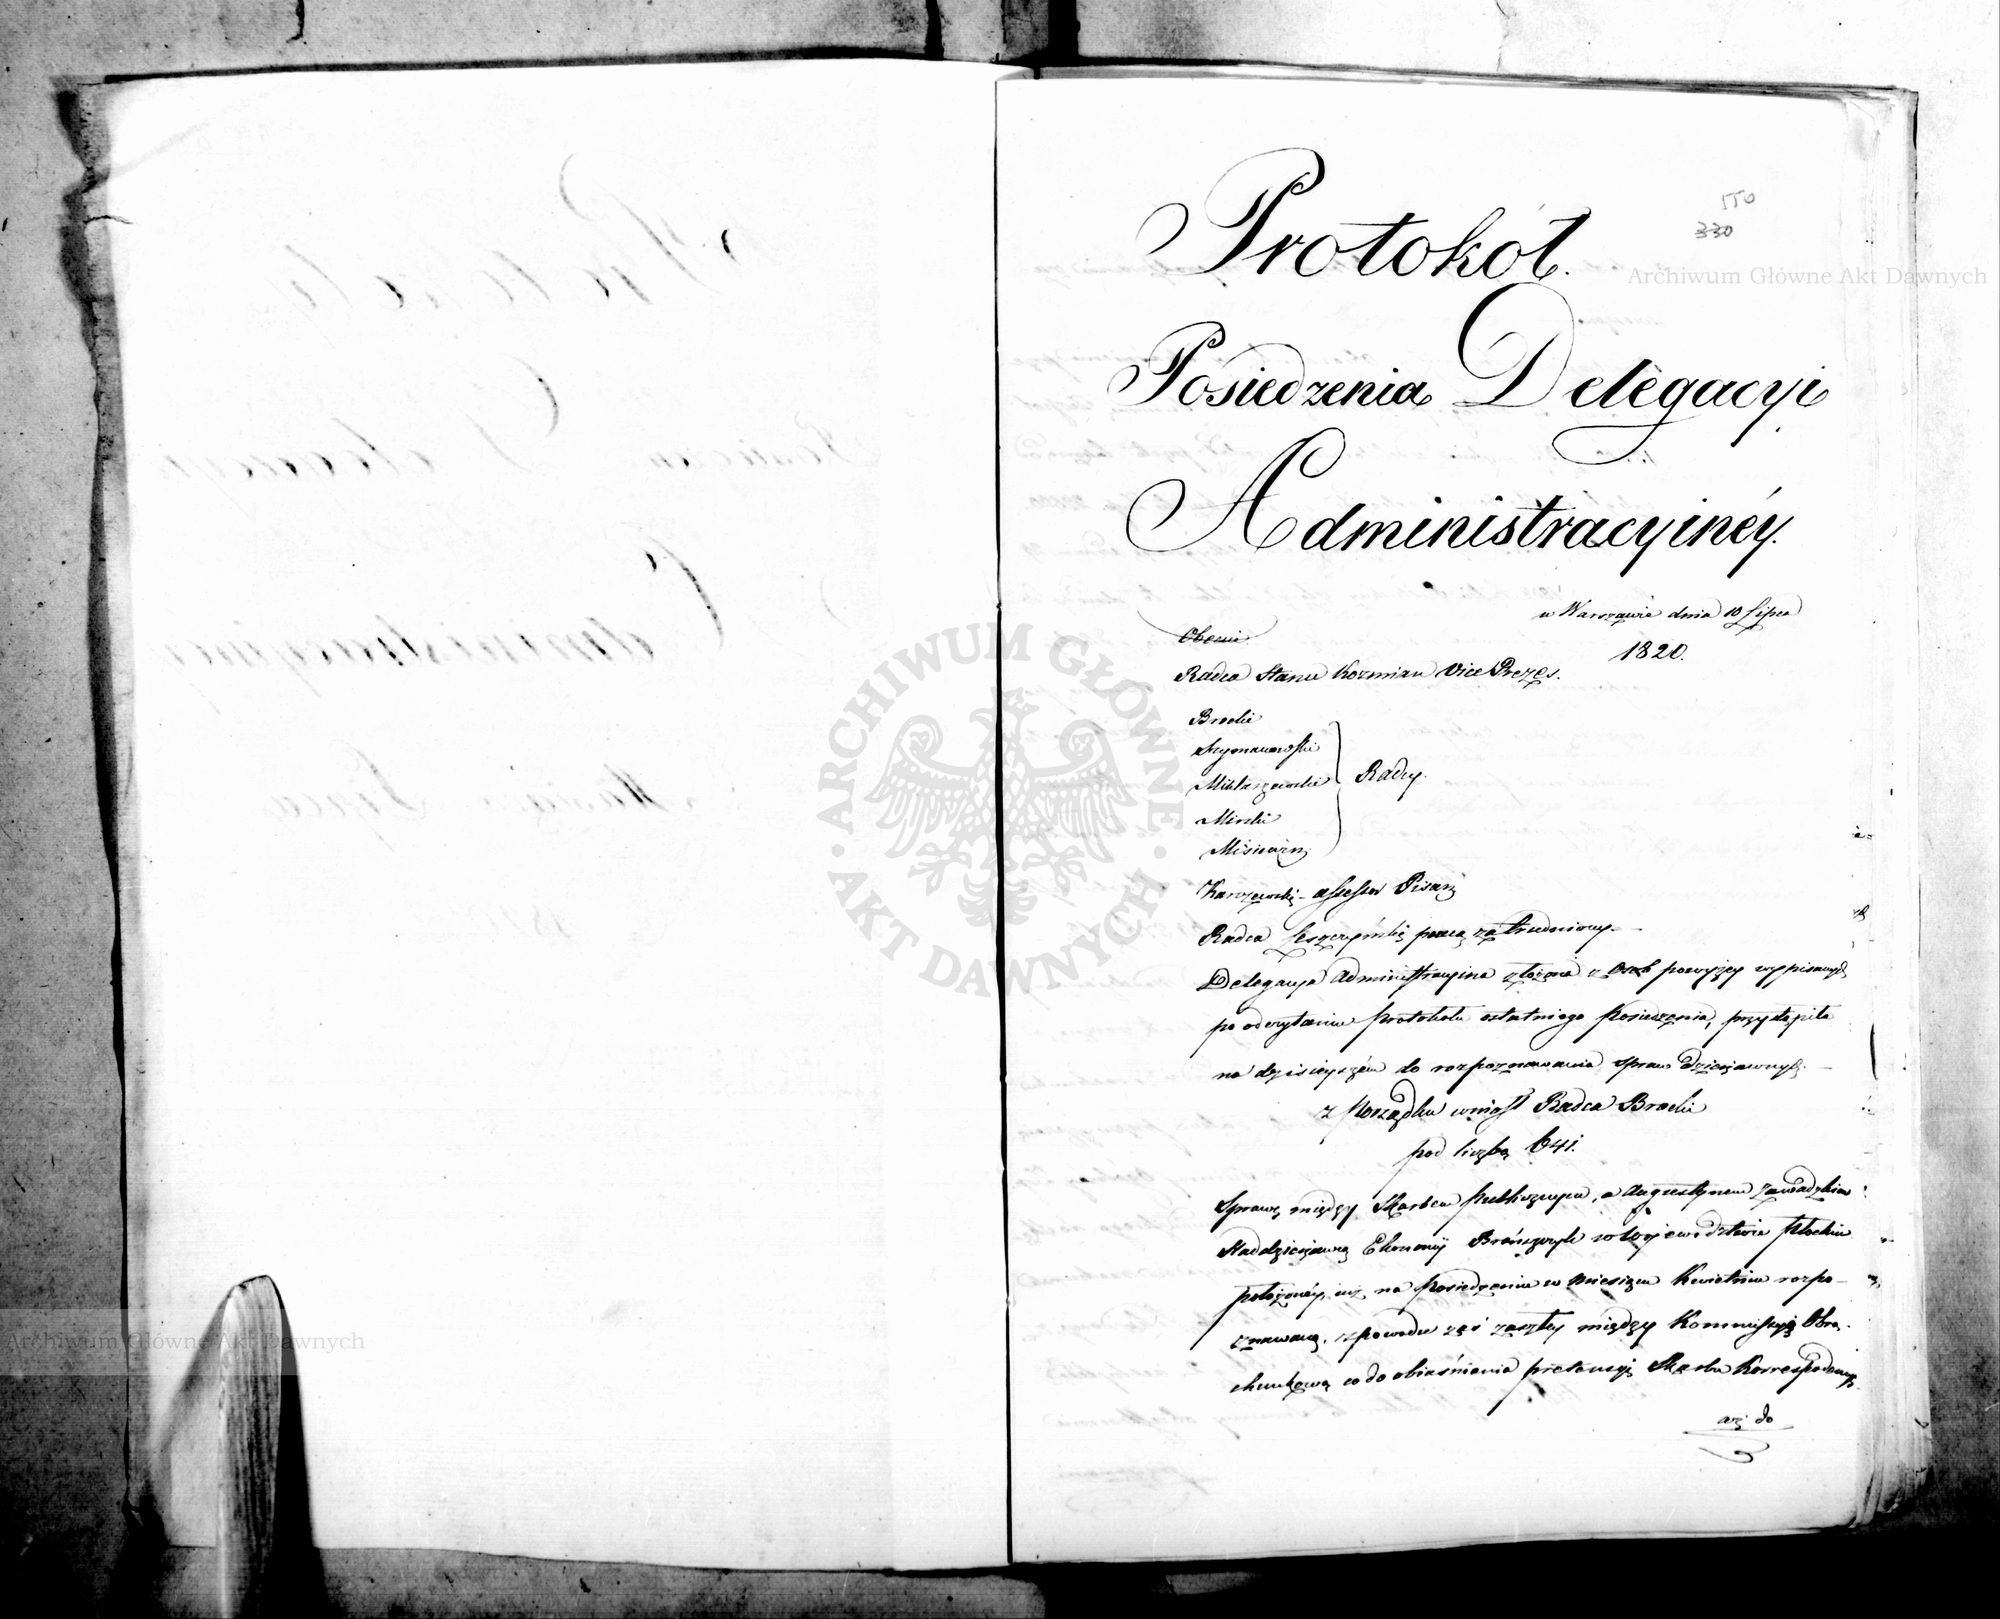 550
330
Protokół.
Posiedzenia Delegacyi
Administracyinéy.
w Warszawie dnia 10 Lipca
1820.
Obecni
Radca Stanu Kozmian Vice Prezes.
Brocki
Szymanowski
Miklaszewski
Mirski
Radcy.
Karczewski - assessor Pisarz
Radca pracą zatrudniony.
Delegacya Administracyina złożona z Osob powyżey wypisanych
po odczytaniu Protokołu ostatniego Posiedzenia, przystąpiła
na dzisieyszém do rozpoznawania spraw dzierżawnych. —
z Porządku wniosł Radca Brocki
pod liczbą 641.
Sprawę między Skarbem Publicznym, a Augustynem Zawadzkim
Naddzierżawcą Ekonomij w Woiewodztwie Płockim
położonéy, iuż na Posiedzeniu w Miesiącu Kwietniu rozpo-
znawaną, z powodu zaś zaszłey między Kommissyą Obra-
chunkową co do obiaśnienia pretensyi Skarbu Korrespodencyi
aż do
Archiwum Główne Akt Dawnych
ARCHIWUM GŁÓWNE · AKT DAWNYCH ·
Archiwum Główne Akt Dawnych